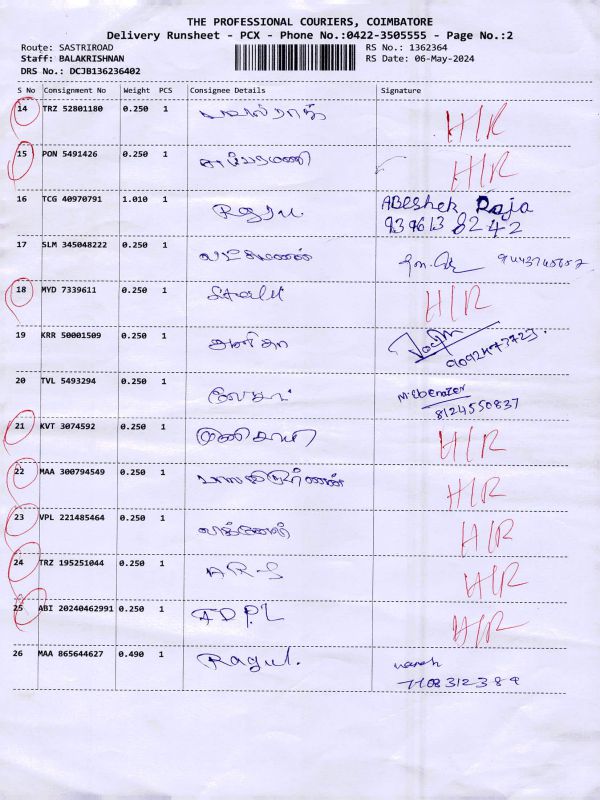 THE PROFESSIONAL COURIERS, COIMBATORE
Delivery Runsheet - PCX - Phone No.:0422-3505555 - Page No.:2
Route: SASTRIROAD RS No.: 1362364
Staff: BALAKRISHNAN RS Date: 06-May-2024
DRS No.: DCJB136236402
S No Consignment No Weight PCS Consignee Details Signature
14 TRZ 52801180 0.250 1 H/R
15 PON 5491426 0.250 1 H/R
16 TCG 40970791 1.010 1 Raju. ABeshek Raja
939613 8242
17 SLM 345048222 0.250 1
18 MYD 7339611 0.250 1 H/R
19 KRR 50001509 0.250 1 9092473723
20 TVL 5493294 0.250 1 M.Ebenezer
8124550837
21 KVT 3074592 0.250 1 H/R
22 MAA 300794549 0.250 1 H/R
23 VPL 221485464 0.250 1 H/R
24 TRZ 195251044 0.250 1 H/R
25 ABI 20240462991 0.250 1 ADPL H/R
26 MAA 865644627 0.490 1 Ragul.
7708312389